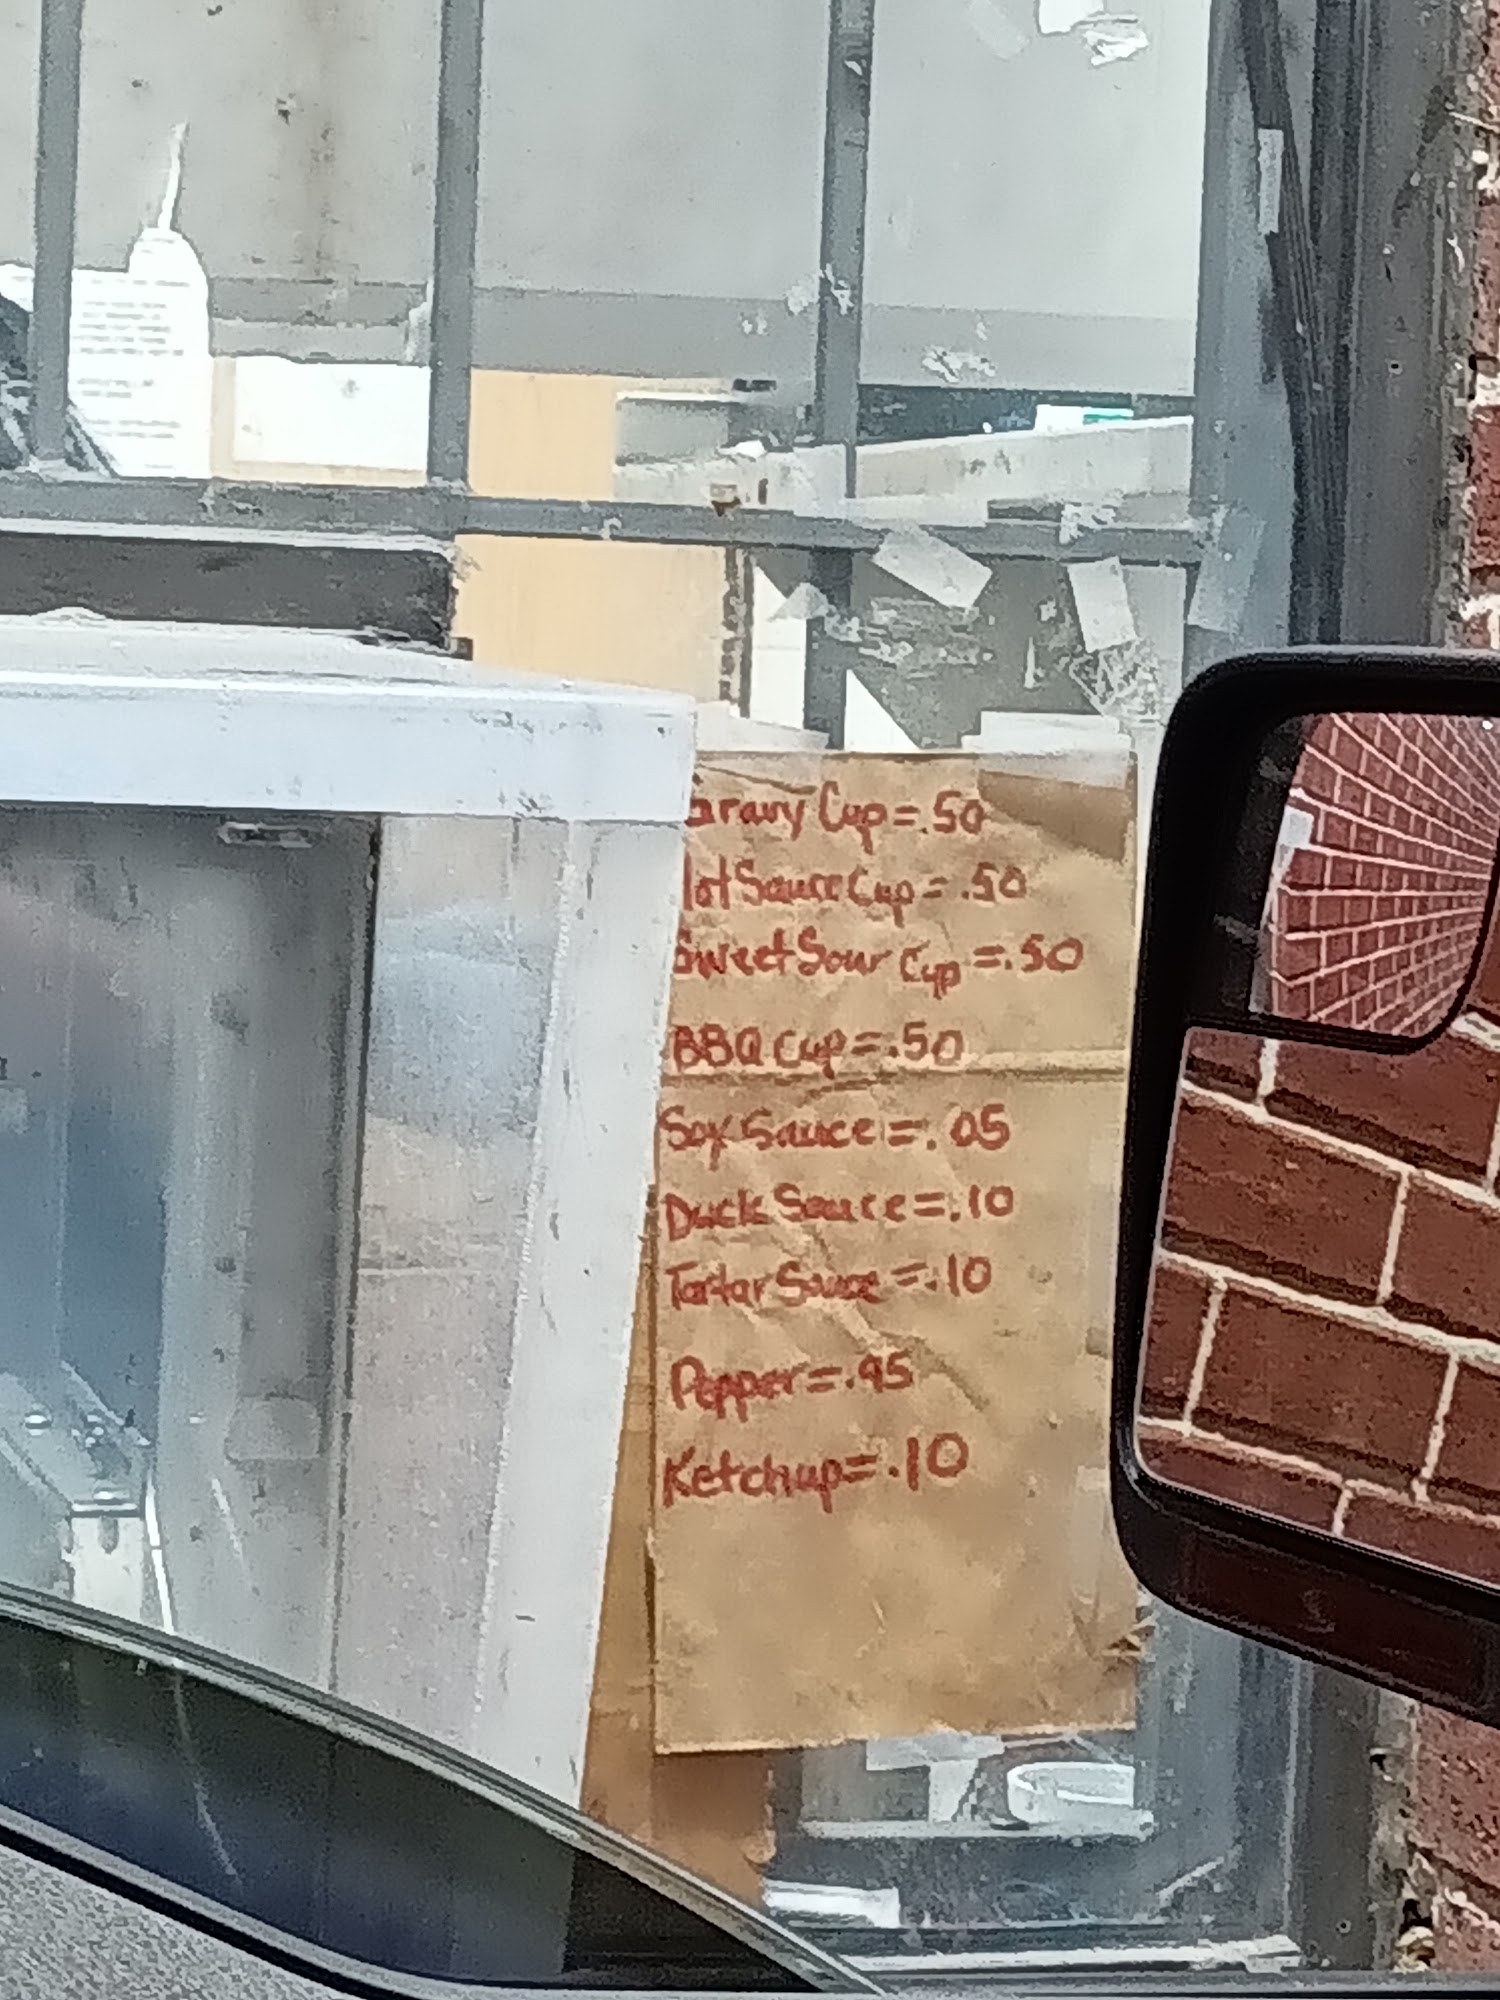 Gravy Cup = .50
Hot Sauce Cup = .50
Sweet Sour Cup = .50
BBQ Cup = .50
Soy Sauce = .05
Duck Sauce = .10
Tartar Sauce = .10
Pepper = .95
Ketchup = .10